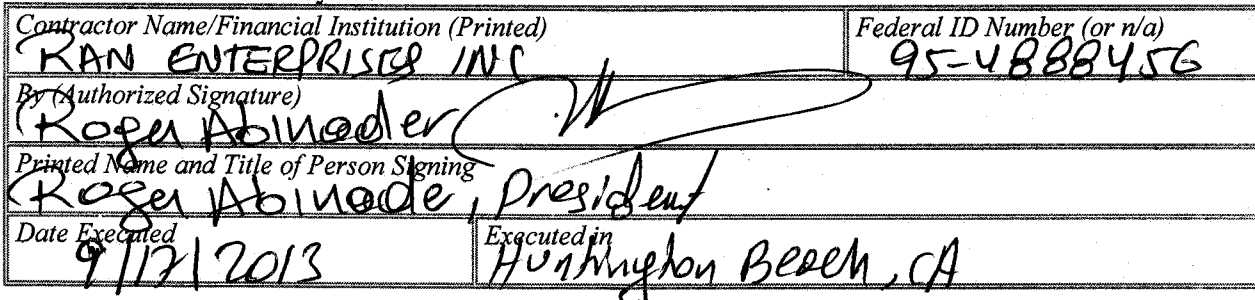 Contractor Name/Financial Institution (Printed)
RAN ENTERPRISES INC
Federal ID Number (or n/a)
95-4888456
By (Authorized Signature)
Roger Abinader
Printed Name and Title of Person Signing
Roger Abinade, President
Date Executed
9/17/2013
Executed in
Huntington Beach, CA